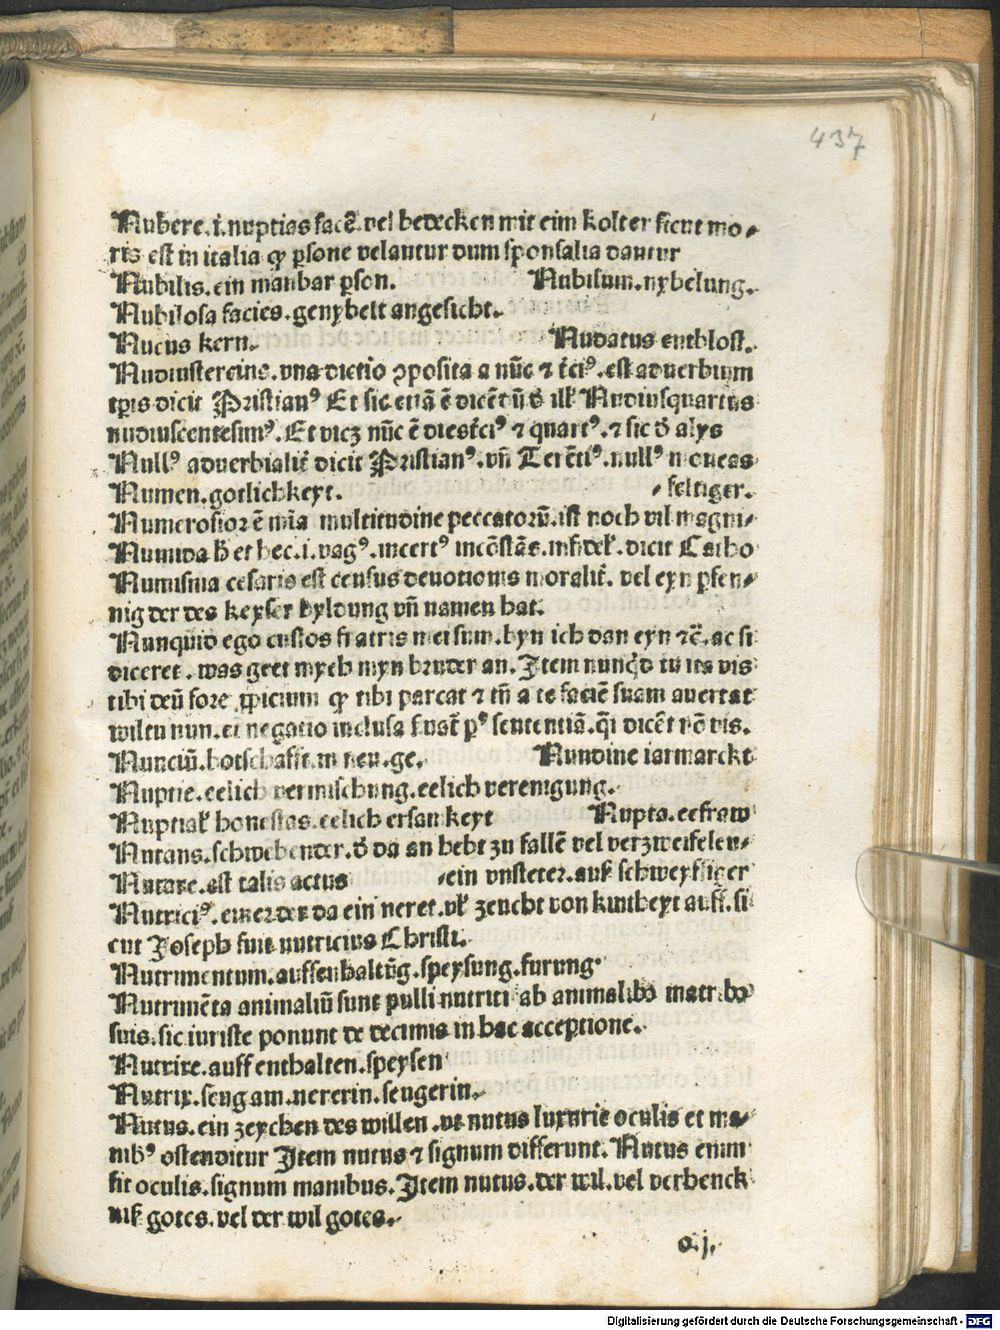 437
Nubere.i.nuptias facẽ.vel bedecken mit eim kolter sicut mo-
ris est in italia qꝫ ꝑsone velantur dum sponsalia dantur
Nubilis.ein manbar ꝑson. Nubilum.nybelung.
Nubilosa facies.genybelt angesicht.
Nucus kern. Nudatus enthblost.
Nudiustercius.vna dictio ꝯposita a nũc ⁊ t̃ciꝰ.est aduerbium
tꝑis dicit Pristianꝰ Et sic etiã ẽ dicẽt Nudiusquartus
nudiuscentesimꝰ.Et dicꝫ nũc ẽ dies t̃ciꝰ ⁊ quartꝰ.⁊ sic ð alys
Nullꝰ aduerbialit̃ dicit Pristianꝰ.vñ Terẽtiꝰ.nullꝰ moueas
Numen.gotlichkeyt. / seltiger.
Numerosior ẽ mĩa multitudine peccatorũ.ist noch vil magni/
Numida et hec.i.vagꝰ.incertꝰ incõstãs.infidel̃.dicit Catho
Numisma cesaris est census deuotionis moralit̃.vel eyn pfen/
nig der des keyser byldung vñ namen hat.
Nunquid ego custos fratris mei sum.byn ich dan eyn ⁊c̃.ac si
diceret.was geet mych myn bruder an.Item nunqd tu ita vis
tibi deũ fore ꝓpicium qꝫ tibi parcat ⁊ tñ a te faciẽ suam auertat
wiltu nun.et negatio inclusa ẽuat̃ pꝰ sententiã.q̃i dicẽt nõ vis.
Nunciũ.botschafft.in neu.ge. Nundine iarmarckt
Nuptie.eelich vermischung.eelich verenigung.
Nuptial̃ honestas.eelich ersankeyt Nupta.eefraw
Nutans.schwebender.ð da an hebt zu fallẽ vel verzweifelen/
Nutare.est talis actus /ein vnsteter.auß schweyffiger
Nutriciꝰ.einer der da ein neret.vñ zeucht von kintheyt auff.si
cut Joseph fuit nutricius Christi.
Nutrimentum.auffenhaltũg.speysung.furung
Nutrimẽta animaliũ sunt pulli nutriti ab animalibꝰ matribꝰ
suis.sic iuriste ponunt de decimis in hac acceptione.
Nutrire.auffenthalten.speysen
Nutrix.seugam.nererin.seugerin.
Nutus.ein zeychen des willen.vt nutus luxurie oculis et ma/
nibꝰ ostenditur Item nutus ⁊ signum differunt.Nutus enim
fit oculis.signum manibus.Item nutus.der wil.vel verhenck
niß gotes.vel der wil gotes.
o.j.
Digitalisierung gefördert durch die Deutsche Forschungsgemeinschaft - DFG